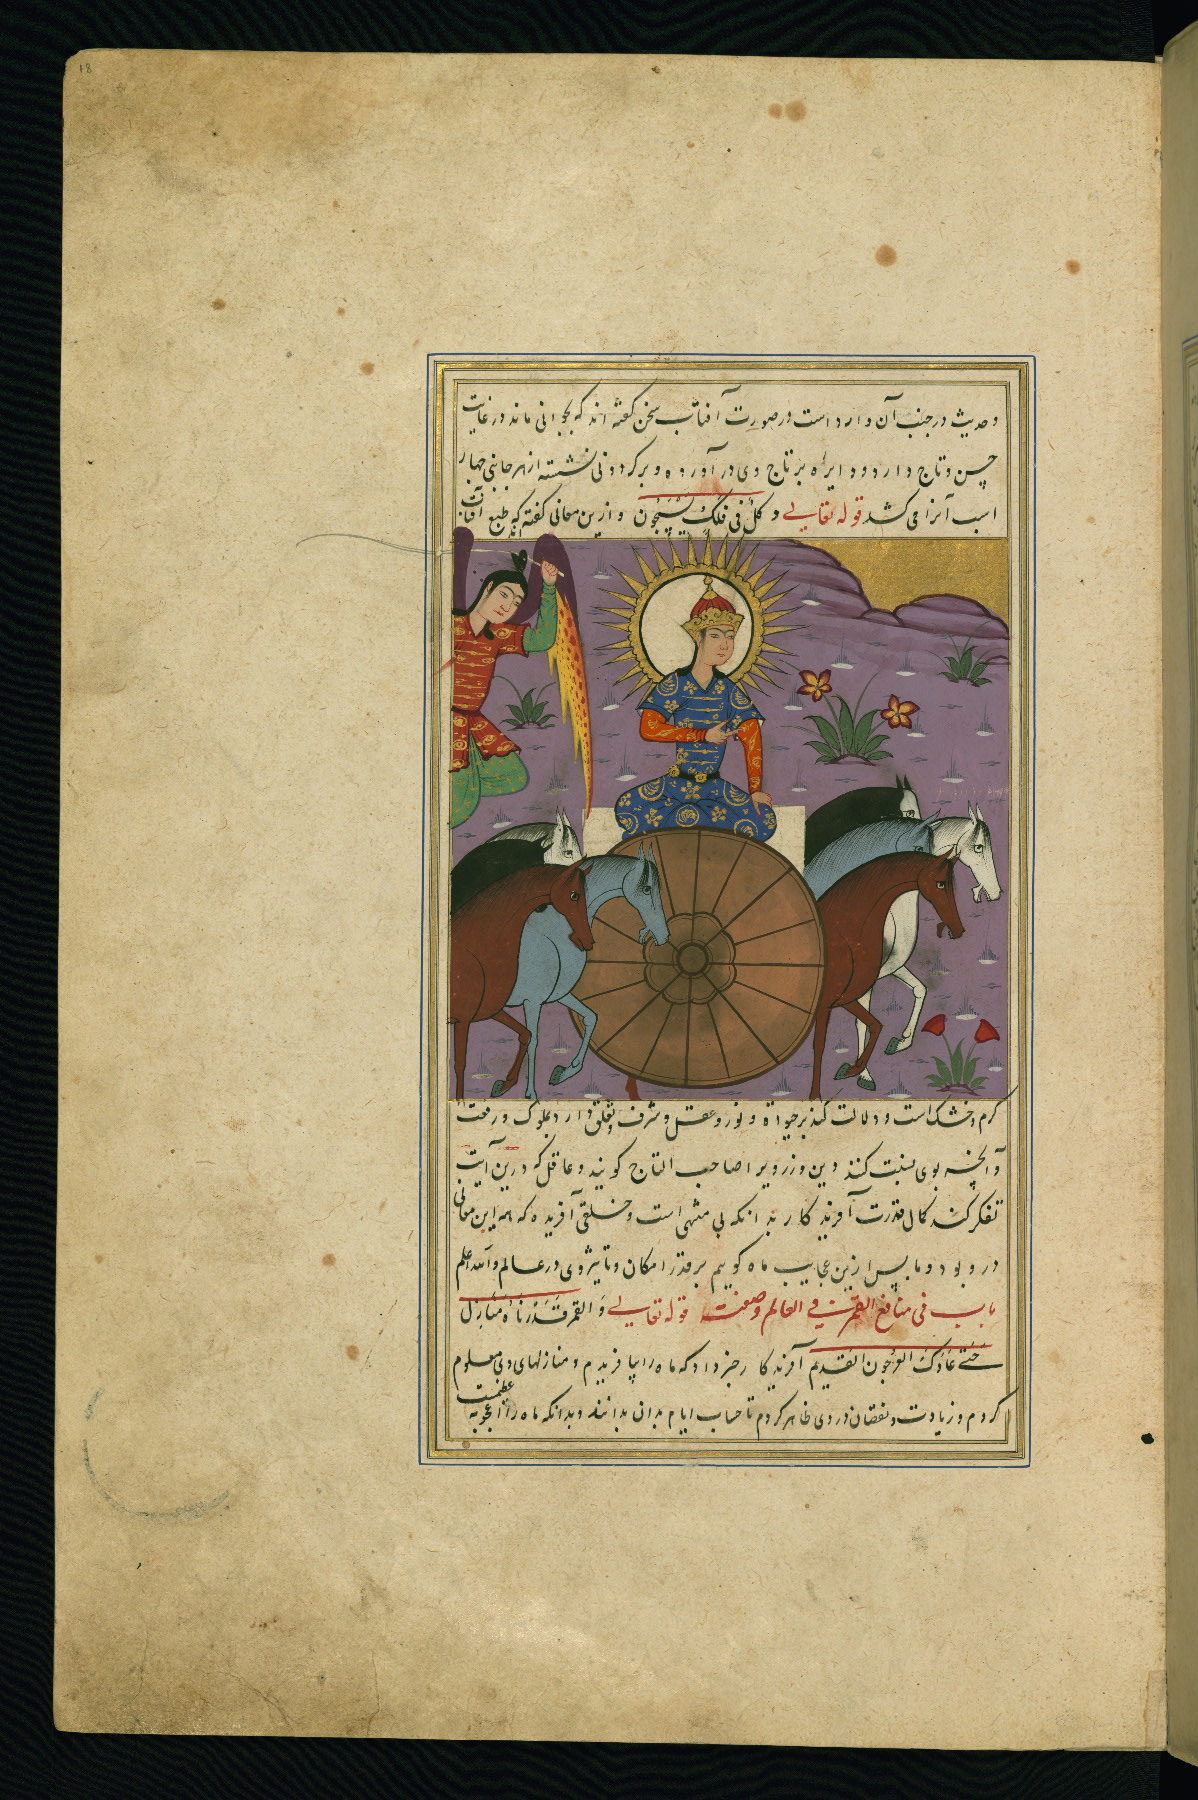 18
و حدیث در جنب آن وارد است در صورت آفتاب سخن گفته اند که بجوانی ماند در غایت
حسن و تاج دارد و دایره بر تاج وی در آورده و بر گردونی نشسته از هر جانبی چهار
اسب آنرا می کشد قوله تعالی و کل فی فلک یسبحون و ازین معانی گفته اند که طبع آفتاب
گرم و خشک است و دلالت کند بر حیوة و نور و عقل و شرف و تعلق دارد بملوک و رفعت
و آنچه بوی نسبت کنند دین و زر ویرا صاحب التاج گویند و عاقل که درین آیت
تفکر کند کمال قدرت آفریدکار بداند که بی منتهی است و خلقی آفریده که همه این معانی
درو بود و ما پس ازین عجایب ماه گوییم بر قدر امکان و تاثیر وی در عالم والله اعلم
باب فی منافع القمر فی العالم وصفته قوله تعالی وَ القمر قَدَّرْنَاهُ مَنَازِلَ
حَتّی عَادَ کَالعُرْجُونِ القَدِیم آفریدکار خبر داد که ماه را بیافریدم و منازلهای وی معلوم
کردم و زیادت و نقصان در وی ظاهر کردم تا حساب ایام بدان بدانند و بدانکه ماه را اعجوبه
عظیمست